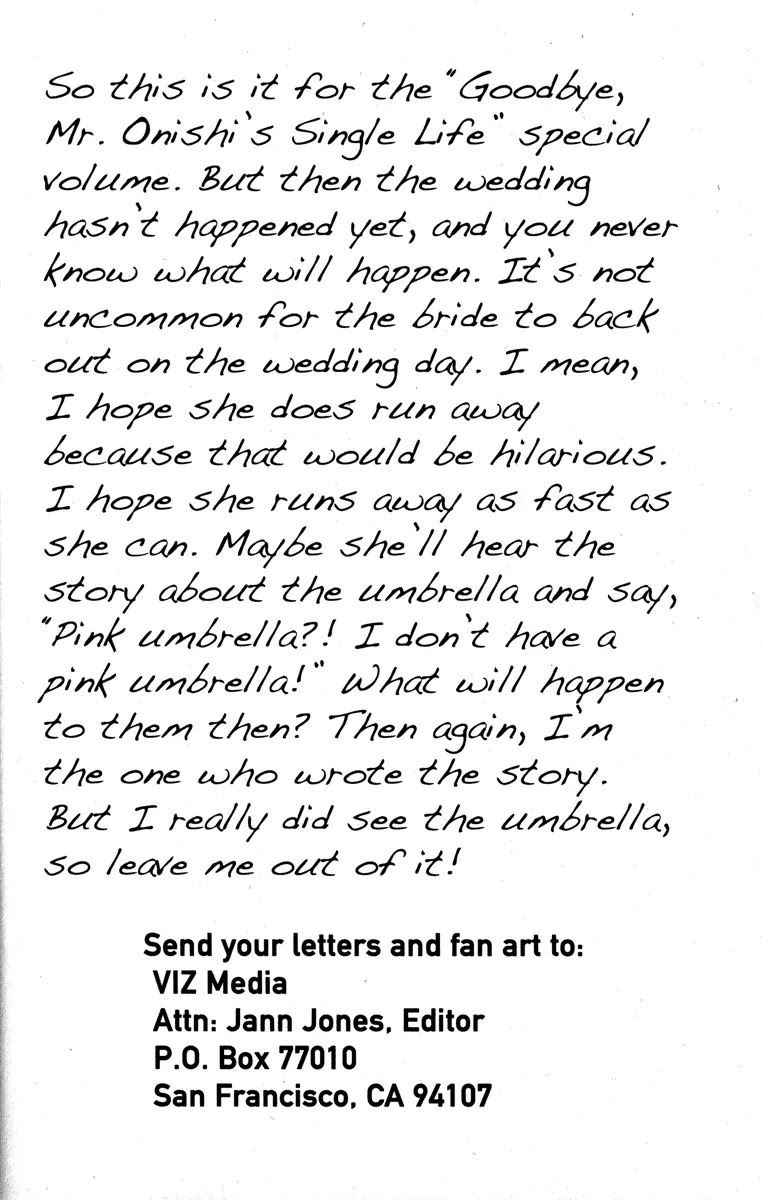 So this is it for the "Goodbye,
Mr. Onishi's Single Life" special
volume. But then the wedding
hasn't happened yet, and you never
know what will happen. It's not
uncommon for the bride to back
out on the wedding day. I mean,
I hope she does run away
because that would be hilarious.
I hope she runs away as fast as
she can. Maybe she'll hear the
story about the umbrella and say,
"Pink umbrella?! I don't have a
pink umbrella!" What will happen
to them then? Then again, I'm
the one who wrote the story.
But I really did see the umbrella,
so leave me out of it!
Send your letters and fan art to:
VIZ Media
Attn: Jann Jones, Editor
P.O. Box 77010
San Francisco, CA 94107